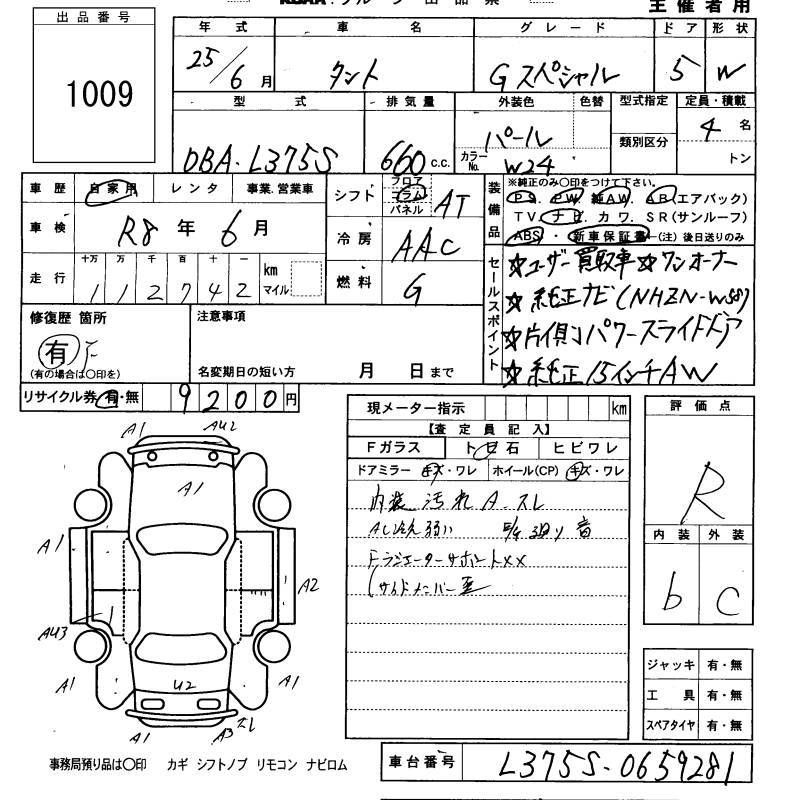 主催者用
出品番号
1009
年式 車名 グレード ドア 形状
25/6月 タント Gスペシャル 5 W
型式 排気量 外装色 色替 型式指定 定員・積載
DBA-L375S 660c.c. パール カラーNo. W24 類別区分 4名 トン
車歴 自家用 レンタ 事業.営業車
車検 R8年6月
走行 十万 万 千 百 十 一 km マイル
112742
シフト フロア コラム パネル AT
冷房 AAC
燃料 G
装備品 ※純正のみ○印をつけて下さい。
PS. PW. 純AW. AB(エアバック)
TV. ナビ. カワ. SR(サンルーフ)
ABS・新車保証書―(注)後日送りのみ
セールスポイント
☆ユーザー買取車☆ワンオーナー
☆純正ナビ(NHZN-W58)
☆片側パワースライドドア
☆純正15インチAW
修復歴 箇所
有
(有の場合は○印を)
注意事項
名変期日の短い方 月 日まで
リサイクル券 有・無 9200円
現メーター指示 km
【査定員記入】
Fガラス ト ビ 石 ヒビワレ
ドアミラー キズ・ワレ ホイール(CP) キズ・ワレ
内装 汚れ A スレ
AC冷え弱い 廻り音
FラジエーターサポートXX
(サイドメンバー歪
評価点
R
内装 外装
b C
A1 AU2
A1
A1
A2
AU3
A1 U2 A1
A1 A3 スレ
ジャッキ 有・無
工具 有・無
スペアタイヤ 有・無
事務局預り品は○印 カギ シフトノブ リモコン ナビロム
車台番号 L375S-0659281